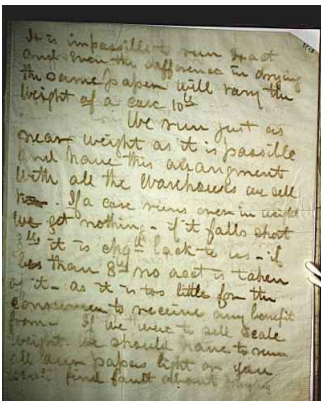 It is impossible to run exact
and even the difference in drying
the same paper will vary the
weight of a case 10 lb
We run just as
near weight as it is possible
and have this arrangment
with all the Warehouses we sell
to. If a case runs over in weight
we get nothing - if it falls short
it is chgd back to us - if
less than 8 lb no acct is taken
of it - as it is too little for the
consumer to receive any benefit
from - If we were to sell scale
weight we should have to run
all our papers light or you
find fault about